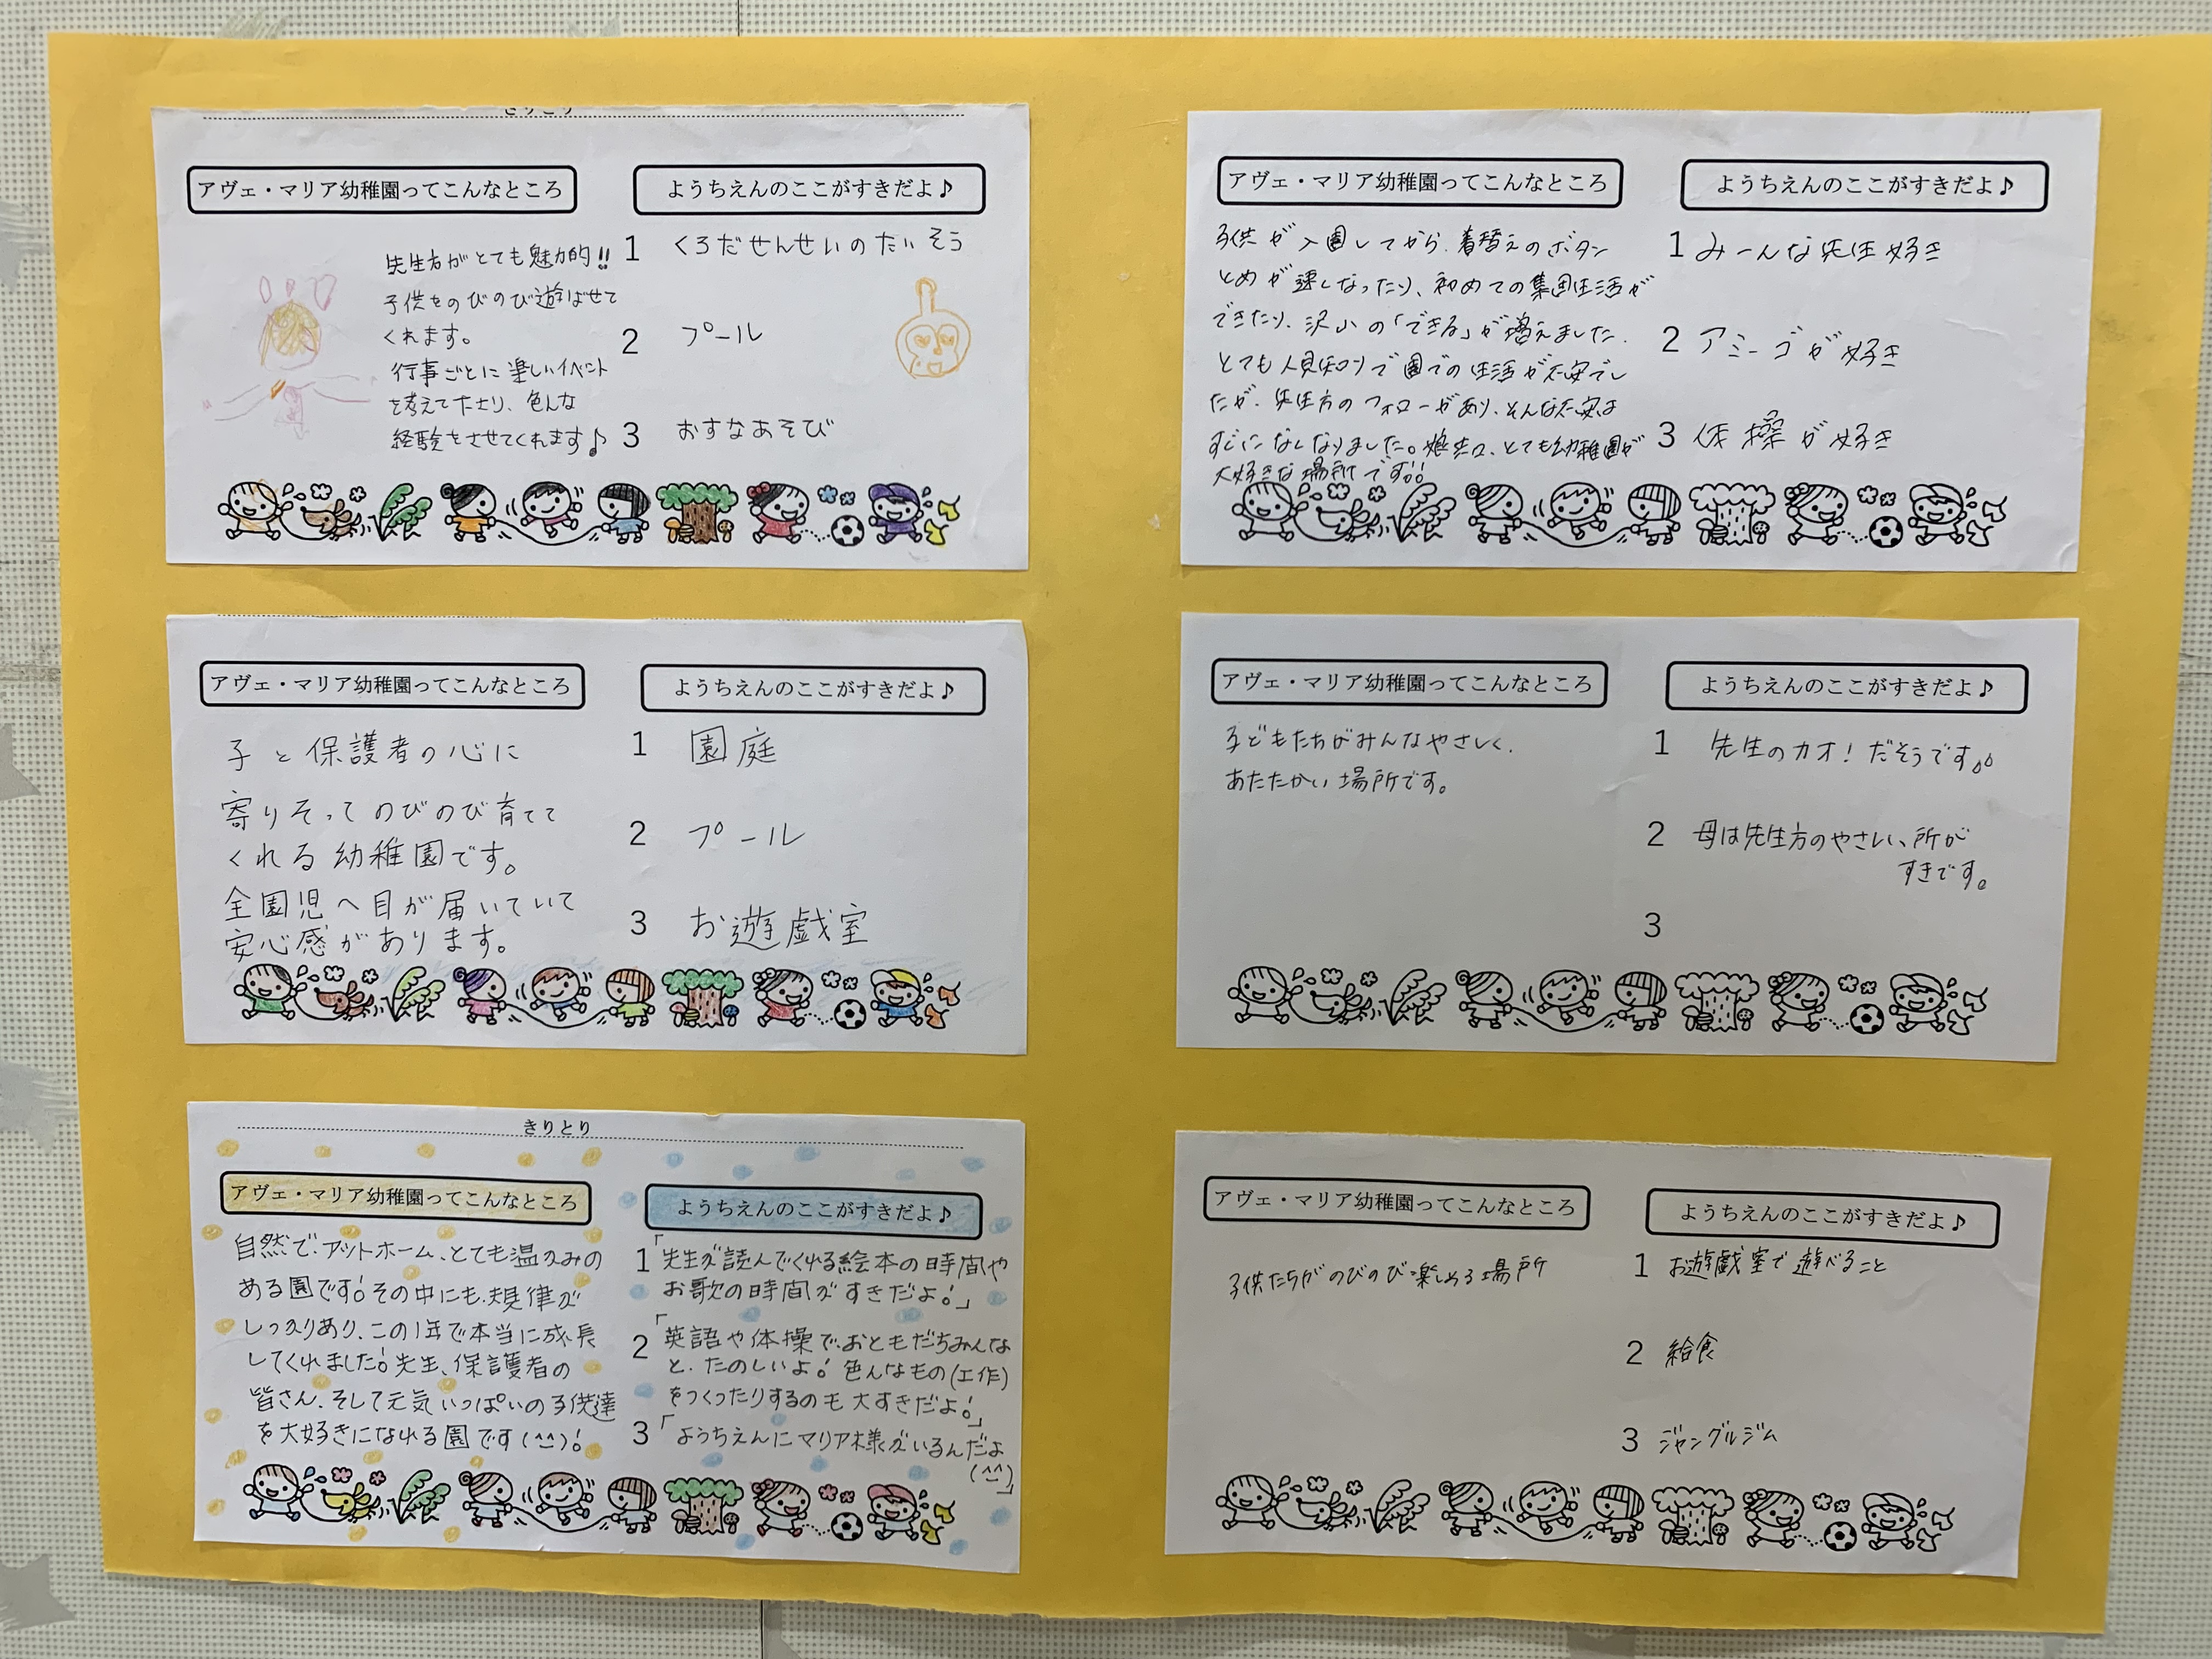 きりとり
アヴェ・マリア幼稚園ってこんなところ
先生方がとても魅力的!!
子供をのびのび遊ばせて
くれます。
行事ごとに楽しいイベント
を考えて下さり、色んな
経験をさせてくれます♪
ようちえんのここがすきだよ♪
1 くろだせんせいのたいそう
2 プール
3 おすなあそび
アヴェ・マリア幼稚園ってこんなところ
子供が入園してから、着替えのボタン
とめが速くなったり、初めての集団生活が
できたり、沢山の「できる」が増えました。
とても人見知りで園での生活が不安でし
たが、先生方のフォローがあり、そんな不安は
すぐになくなりました。娘も、とても幼稚園が
大好きな場所です!!
ようちえんのここがすきだよ♪
1 みーんな先生好き
2 アミーゴが好き
3 体操が好き
アヴェ・マリア幼稚園ってこんなところ
子と保護者の心に
寄りそってのびのび育てて
くれる幼稚園です。
全園児へ目が届いていて
安心感があります。
ようちえんのここがすきだよ♪
1 園庭
2 プール
3 お遊戯室
アヴェ・マリア幼稚園ってこんなところ
子どもたちがみんなやさしく、
あたたかい場所です。
ようちえんのここがすきだよ♪
1 先生のカオ!だそうです♪
2 母は先生方のやさしい所が
すきです。
3
きりとり
アヴェ・マリア幼稚園ってこんなところ
自然で、アットホーム、とても温かみの
ある園です!その中にも、規律が
しっかりあり、この1年で本当に成長
してくれました!先生、保護者の
皆さん、そして元気いっぱいの子供達
を大好きになれる園です(^^)!
ようちえんのここがすきだよ♪
1 「先生が読んでくれる絵本の時間や
お歌の時間がすきだよ!」
2 「英語や体操で、おともだちみんな
と、たのしいよ!色んなもの(工作)
をつくったりするのも大すきだよ!」
3 「ようちえんにマリア様がいるんだよ
(^^)」
アヴェ・マリア幼稚園ってこんなところ
子供たちがのびのび楽しめる場所
ようちえんのここがすきだよ♪
1 お遊戯室で遊べること
2 給食
3 ジャングルジム